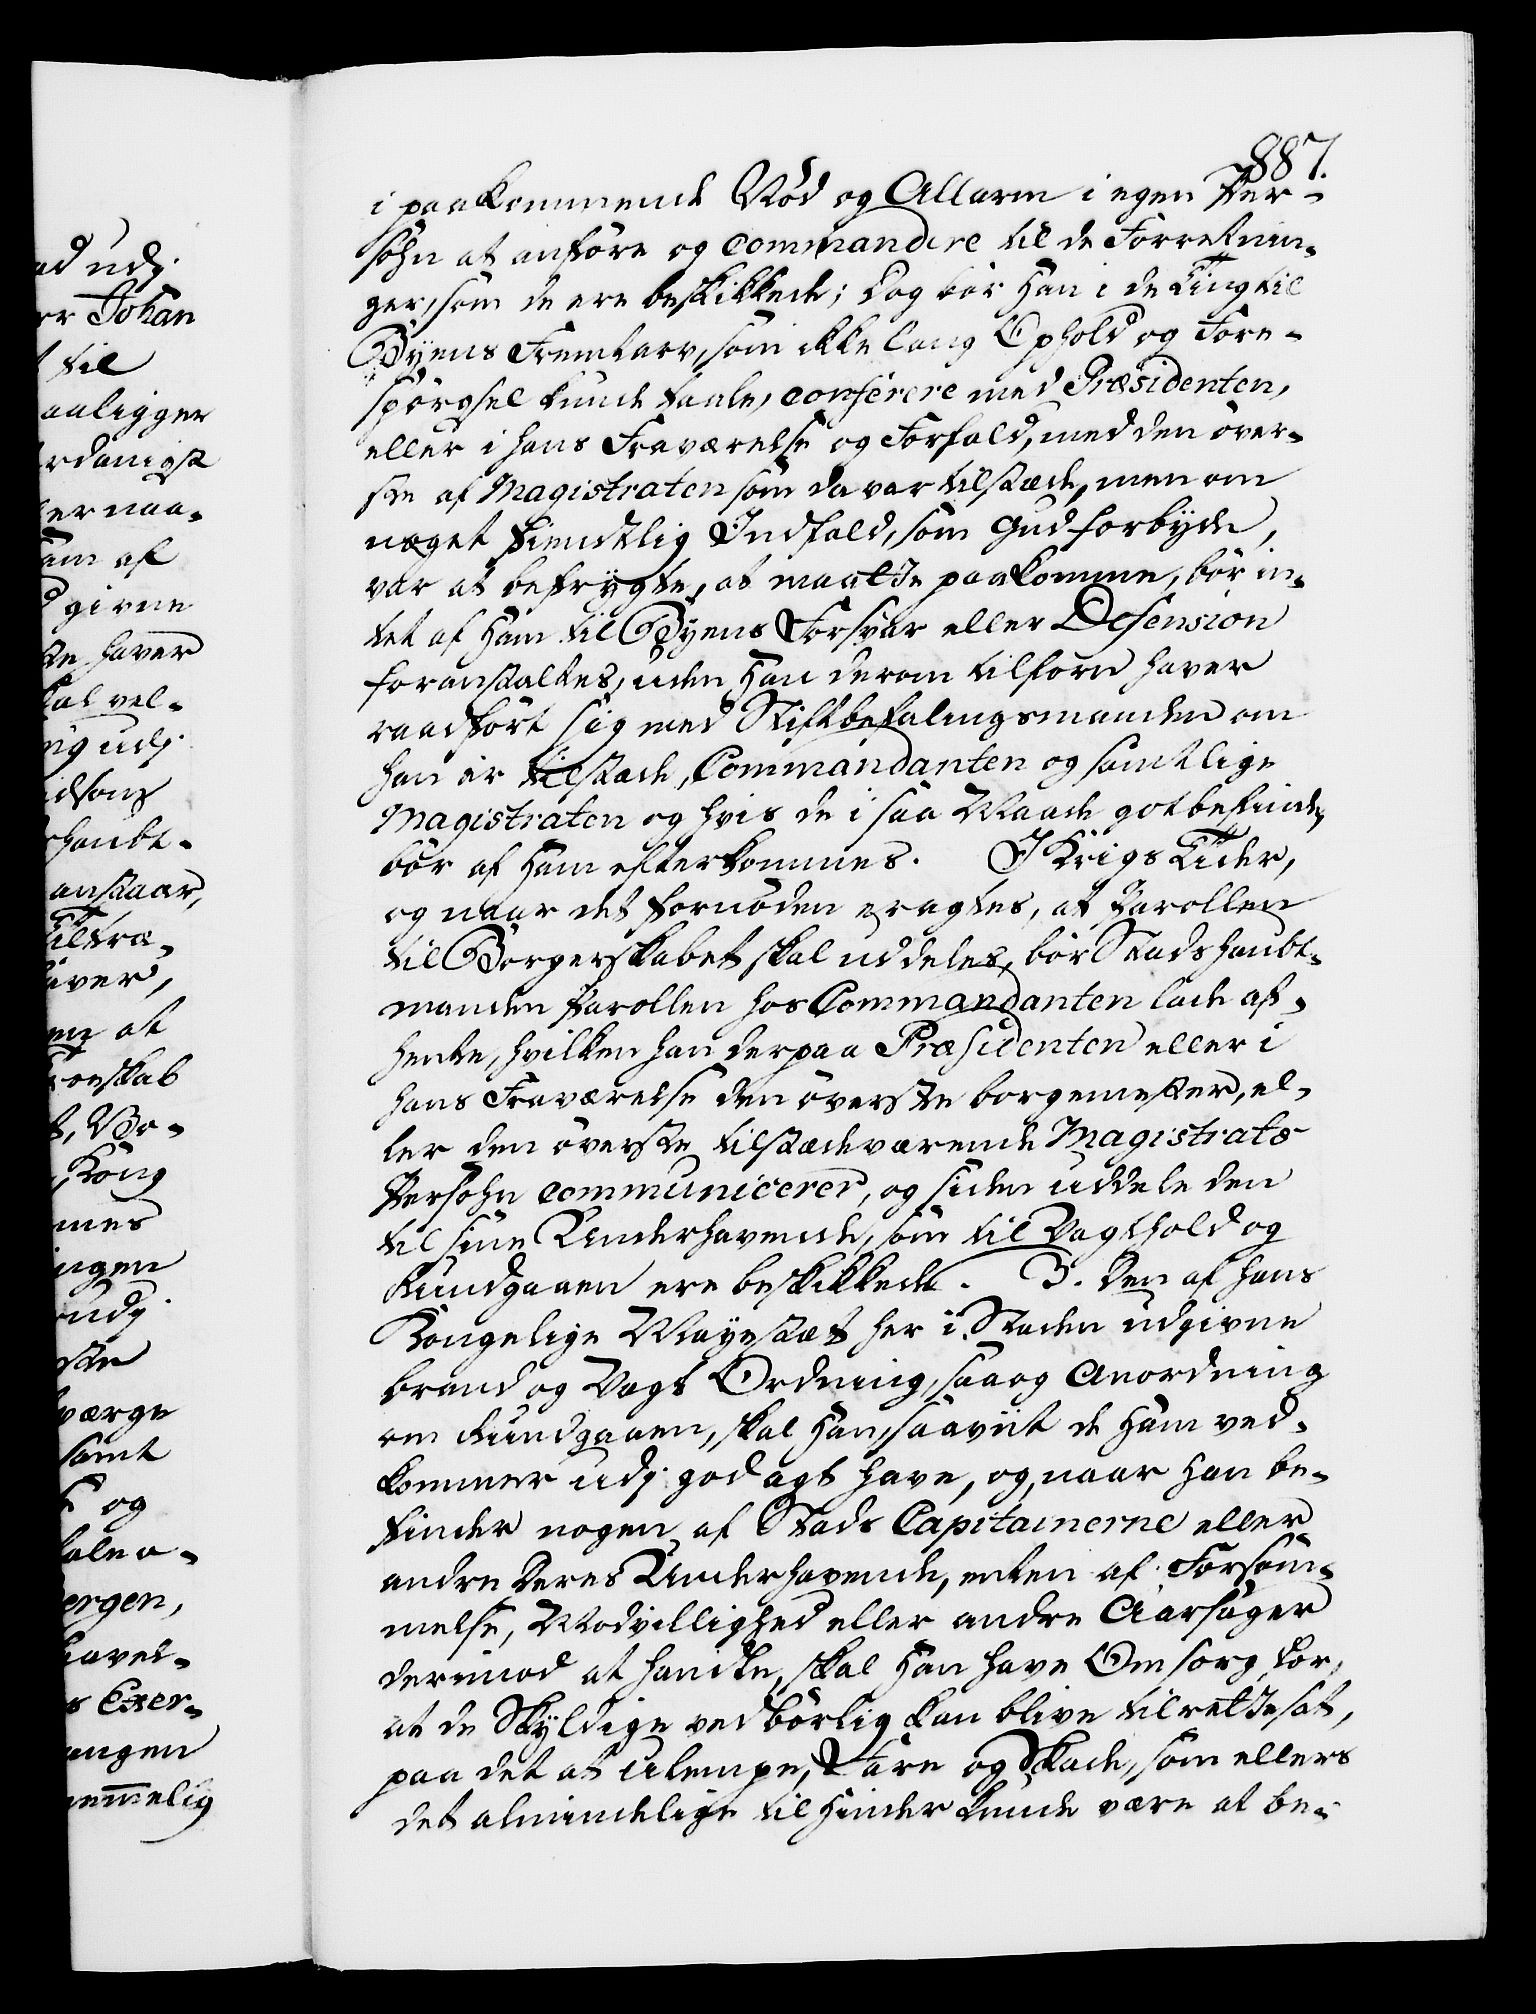 887.
i paakommende Nød og Allarm i egen Per-
sohn at anføre og commandere til de Forretnin-
ger, som de ere beskikkede; Dog bør Han i de Ting til
Byens Fremtarv, som ikke lang Ophold og Fore-
spørgsel kunde taale, conferere med Præsidenten,
eller i hans Fraværelse og Forfald, med den øver-
ste af Magistraten som da var tilstæde, men om
noget fiendtlig Indfald, som Gud forbyde,
var at befrygte, at maatte paakomme, bør in-
tet af Ham til Byens Forsvar eller Defension
foranstaltes, uden Han derom tilforn haver
raadført sig med Stiftbefalingsmanden om
han er tilstæde, Commandanten og samtlige
Magistraten og hvis de i saa Maade got befinde,
bør af Ham efterkommes. I Krigs Tider,
og naar det fornøden eragtes, at Parollen
til Borgerskabet skal uddeles, bør Stadshaubt-
manden Parollen hos Commandanten lade af-
hente, hvilken han derpaa Præsidenten eller i
hans Fraværelse den øverste borgemester, el-
ler den øverste tilstædeværende Magistrats
Persohn communicerer, og siden uddele den
til sine Underhavende, som til Vagthold og
Rundgaaen ere beskikkede. 3. Den af Hans
Kongelige Mayestæt her i Staden udgivne
brand og Vagt Ordning, saa og Anordning
om Rundgaaen, skal Han, saaviit de Ham ved-
kommer udj god agt have, og, naar Han be-
finder nogen af Stads Capitainerne eller
andre Deres Underhavende, enten af Forsøm-
melse, Modvillighed eller andre Aarsager
derimod at handle, skal Han have Omsorg for,
at de Skyldige ved børlig kan blive tilrettesat,
paa det at Ulempe, Fare og Skade, som ellers
det almindelige til Hinder kunde være at be-
ad udj
rr Johan
til
aaligger
rdanigst
er naa-
am af
givne
te haver
kal vel-
ng udj
idsons
haubt-
anstaar,
Tiltræ-
iver,
en at
oeskab
t, Bo-
Kong
mes
ingen
udj
ste
værge
samt
og
ergen,
avel-
s Exer-
angen
nemmelig